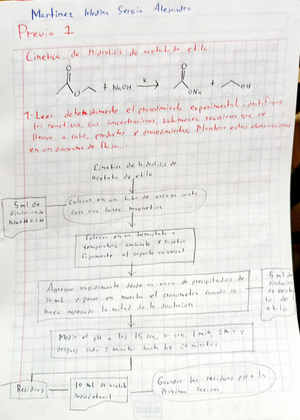 Martinez Medina Sergio Alejandro
Previo 1
Cinetica de Hidrolisis de acetato de etilo
O O
O + NaOH K ONa + OH
1- Leer detenidamente el procedimiento experimental identifique
los reactivos, sus concentraciones, volumenes, reacciones que se
llevan a cabo, productos y procedimientos. Plantear estas observaciones
en un diagrama de flujo.
Cinetica de hidrolisis de
acetato de etilo
5 ml de
disolución de
Colocar en un tubo de ensaye
con una barra magnetica
Colocar en un termostato a
temperatura ambiente y sujetar
fijamente al soporte universal
Agregar rapidamente desde un vaso de precipitados de
10 ml y poner en marcha el cronometro cuando se
haya agregado la mitad de la disolución
5 ml de
disolución
de
etilo
Medir el pH a los 15 seg, 1 min, 2 min y
despues cada 2 minutos hasta los 20 minutos
Residuos
10 ml de acetato
Guardar los residuos para la
proxima sesion.